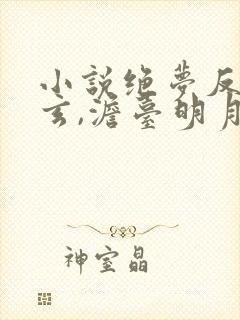 小說绝夢反
玄,澹臺明月
神室晶